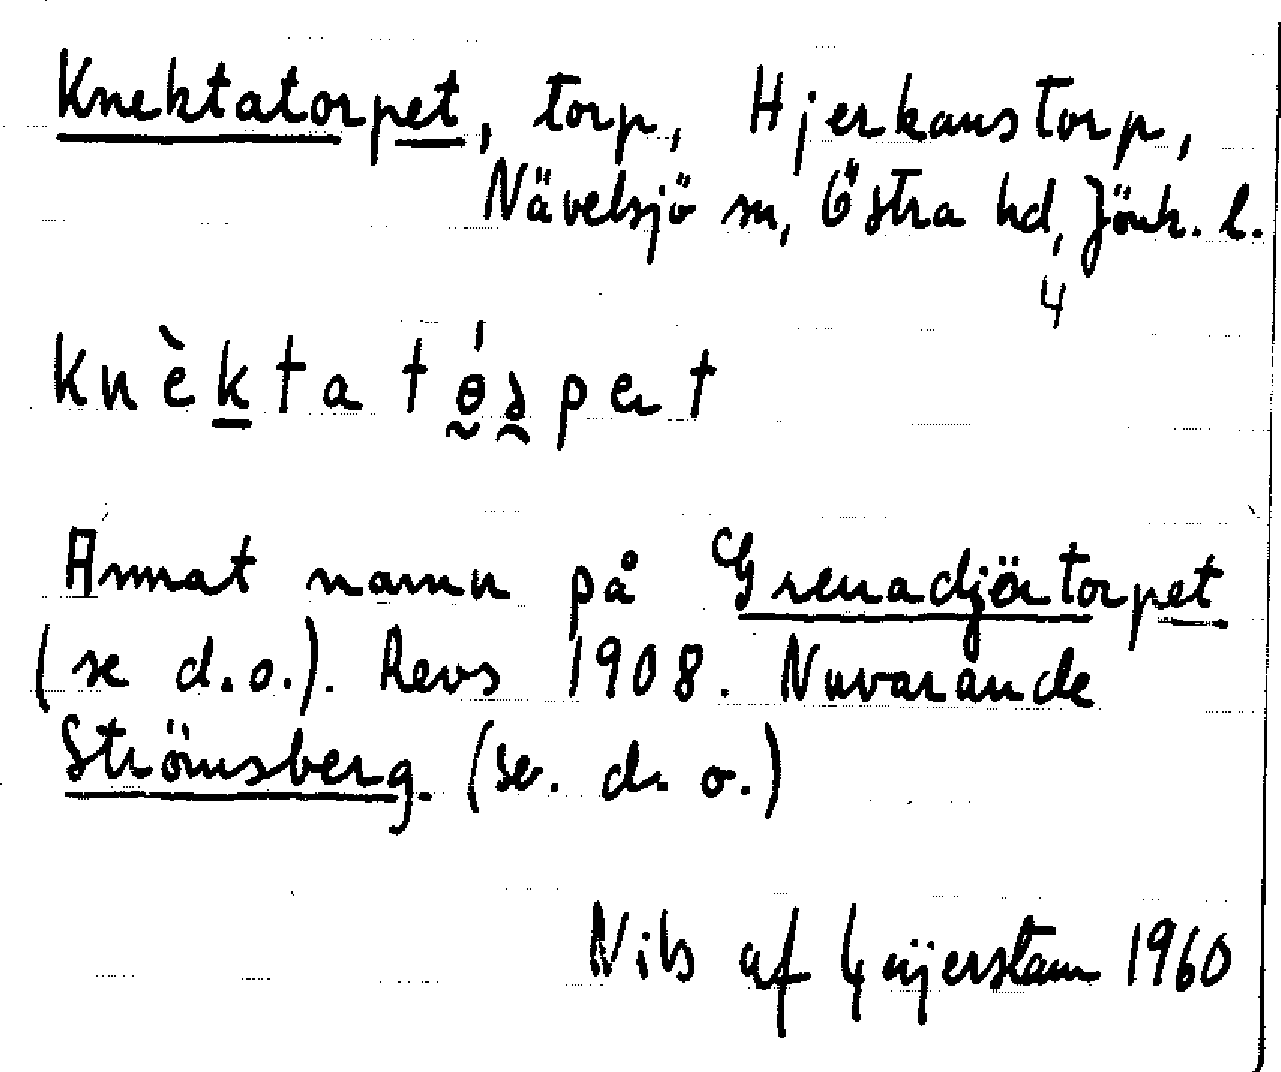 Knektatorpet, torp, Hjerkanstorp,
Nävelsjö sn, Östra hd, Jönk. l.
4
Annat namn på Grenadjärtorpet
(se d.o.). Revs 1908. Nuvarande
Strömsberg. (se. d. o.)
Nils af Geijerstam 1960